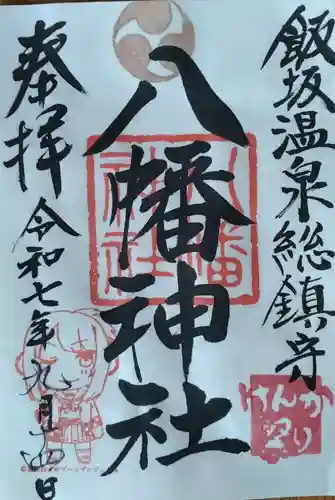 飯坂温泉総鎮守
八幡神社
八幡神社
けんか祭り
奉拝
令和七年九月四日